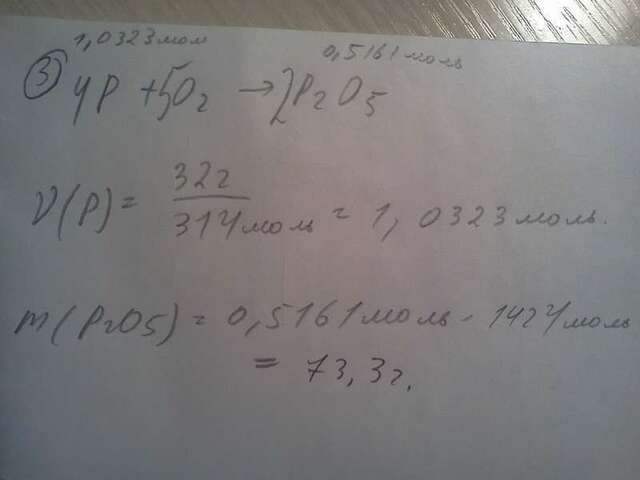 1,0323 мол 0,5161 моль
③ 4P + 5O₂ → 2P₂O₅
ν(P) = 32г / 31г/моль = 1,0323 моль.
m(P₂O₅) = 0,5161 моль · 142г/моль
= 73,3г.